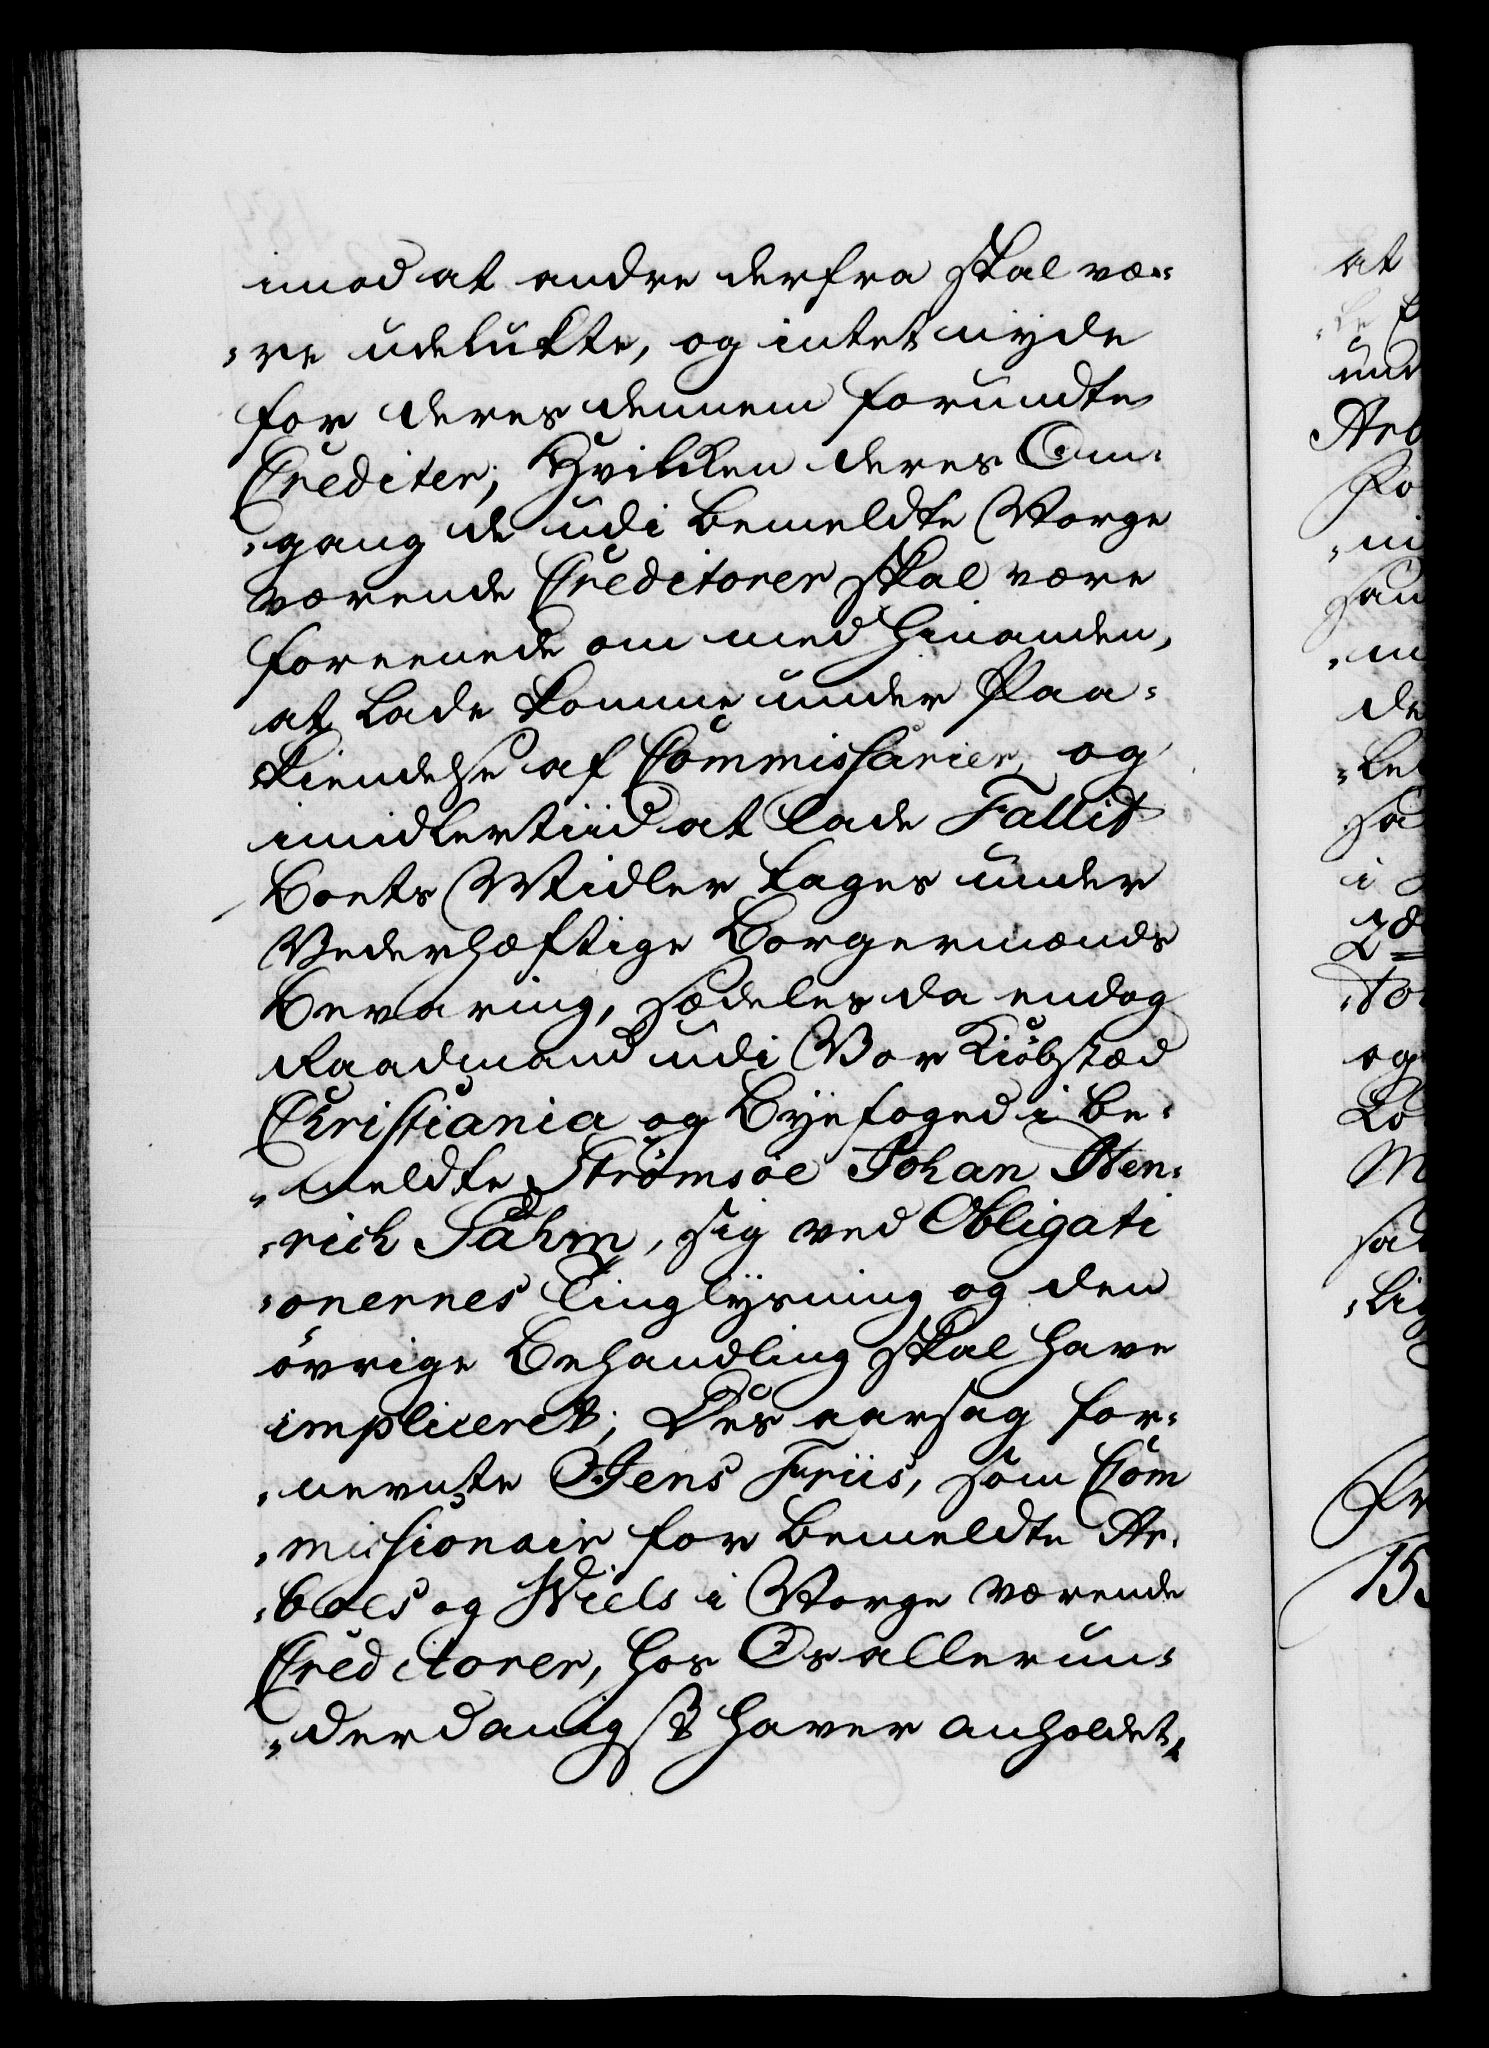 imod at andre derfra skal væ-
-re udelukte, og intet nyde
for deres dennem forundte
Crediter; Hvilken deres Om-
-gang de udi bemeldte Norge
værende Creditorer skal være
foreenede om med hinanden,
at lade komme under Paa-
kiendelse af Commissarier, og
imidlertiid at lade Fallit
Boets Midler tages under
Vederhæftige Borgermænds
Bevaring, sædeles da endog
Raadmand udi Vor Kiøbstæd
Christiania og Byefoged i be-
-meldte Strømsøe Johan Hen-
-rich Påhm, sig ved Obligati
-onernes Tinglysning og den
øvrige Behandling skal have
impliceret; Des aarsag for-
-nevnte Jens Friis, som Com
-missionair for bemeldte Ar-
-boes og Niels i Norge værende
Creditorer, hos Os allerun-
-derdanigst haver anholdet,
at
und
Arb
Po
-ni
sam
de
sa
i
2de
og
Lo
M